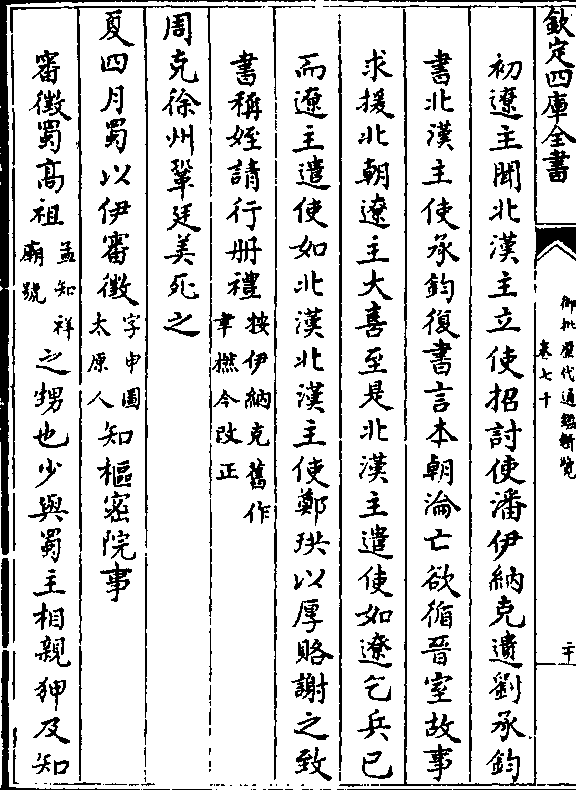 欽定四庫全書
御批歷代通鑑輯覽
卷七十
二十
初遼主聞北漢主立使招討使潘伊納克遺劉承鈞
書北漢主使承鈞復書言本朝淪亡欲循晉室故事
求援北朝遼主大喜至是北漢主遣使如遼乞兵已
而遼主遣使如北漢北漢主使鄭珙以厚賂謝之致
書稱姪請行册禮按伊納克舊作
聿撚今改正
周克徐州鞏廷美死之
夏四月蜀以伊審徵字申圖
太原人知樞密院事
審徵蜀高祖孟知祥
廟號之甥也少與蜀主相親狎及知